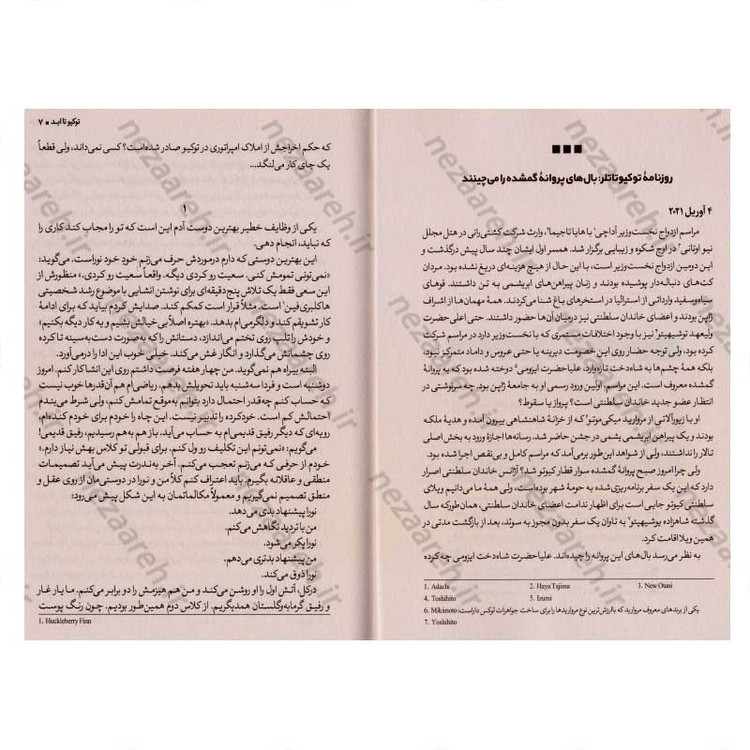 روزنامهٔ توکیو تاتلر: بال‌های پروانهٔ گمشده را می‌چینند
۴ آوریل ۲۰۲۱
مراسم ازدواج نخست‌وزیر آداچی¹ با هایا تاجیما²، وارث شرکت کشتی‌رانی در هتل مجلل
نیو اوتانی³ در اوج شکوه و زیبایی برگزار شد. همسر اول ایشان چند سال پیش درگذشت و
این دومین ازدواج نخست‌وزیر است، با این حال از هیچ هزینه‌ای دریغ نشده بود. مردان
کت‌های دنباله‌دار پوشیده بودند و زنان پیراهن‌های ابریشمی به تن داشتند. قوهای
سیاه‌وسفید وارداتی از استرالیا در استخرهای باغ شنا می‌کردند. همهٔ مهمان‌ها از اشراف
ژاپن بودند و اعضای خاندان سلطنتی نیز در میان آن‌ها حضور داشتند. حتی اعلی‌حضرت
ولیعهد توشیهیتو⁴ نیز با وجود اختلافات مستمری که با نخست‌وزیر دارد در مراسم شرکت
کرده بود، ولی توجه حضار روی این خصومت دیرینه یا حتی عروس و داماد متمرکز نبود،
بلکه همهٔ چشم‌ها به شاه‌دخت تازه‌وارد، علیاحضرت ایزومی⁵ دوخته شده بود که به پروانهٔ
گمشده معروف است. این مراسم، اولین ورود رسمی او به جامعهٔ ژاپن بود. چه سرنوشتی در
انتظار عضو جدید خاندان سلطنتی است؟ پرواز یا سقوط؟
او با زیورآلاتی از مروارید میکی‌موتو⁶ که از خزانهٔ شاهنشاهی بیرون آمده و هدیهٔ ملکه
بودند و یک پیراهن ابریشمی یشمی در جشن حاضر شد. رسانه‌ها اجازهٔ ورود به بخش اصلی
تالار را نداشتند، ولی از شواهد این‌طور برمی‌آمد که مراسم کامل و بی‌نقص اجرا شده بود.
ولی چرا امروز صبح پروانهٔ گمشده سوار قطار کیوتو شد؟ آژانس خاندان سلطنتی اصرار
دارد که این یک سفر برنامه‌ریزی‌شده به حومهٔ شهر بوده‌است، ولی همهٔ ما می‌دانیم ویلای
سلطنتی کیوتو جایی است برای اظهار ندامت اعضای خاندان سلطنتی، همان‌طور که سال
گذشته شاهزاده یوشیهیتو⁷ به تاوان یک سفر بدون مجوز به سوئد، بعد از بازگشت مدتی در
همین ویلا اقامت کرد.
به نظر می‌رسد بال‌های این پروانه را چیده‌اند. علیاحضرت شاه‌دخت ایزومی چه کرده
1. Adachi 2. Haya Tajima 3. New Otani
4. Toshihito 5. Izumi
6. Mikimoto یکی از برندهای معروف مروارید که باارزش‌ترین نوع مرواریدها را برای ساخت جواهرات لوکس داراست.
7. Yoshihito
توکیو تا ابد ■ ۷
که حکم اخراجش از املاک امپراتوری در توکیو صادر شده‌است؟ کسی نمی‌داند، ولی قطعاً
یک جای کار می‌لنگد...
۱
یکی از وظایف خطیر بهترین دوست آدم این است که تو را مجاب کند کاری را
که نباید، انجام دهی.
این بهترین دوستی که دارم درموردش حرف می‌زنم خودِ خودِ نوراست. می‌گوید:
«نمی‌تونی تمومش کنی. سعیت رو کردی دیگه. واقعاً سعیت رو کردی.» منظورش از
این سعی فقط یک تلاش پنج‌دقیقه‌ای برای نوشتن انشایی با موضوع رشد شخصیتی
هاکلبری‌فین¹ است. مثلاً قرار است کمکم کند. صدایش کردم بیاید که برای ادامهٔ
کار تشویقم کند و دلگرمی‌ام بدهد. «بهتره اصلاً بی‌خیالش بشیم و یه کار دیگه بکنیم»
و خودش را تلپ روی تختم می‌اندازد، دستانش را که به‌صورت دست‌به‌سینه تا کرده
روی چشمانش می‌گذارد و انگار غش می‌کند. خیلی خوب این ادا را درمی‌آورد.
البته بیراه هم نمی‌گوید. من چهار هفته فرصت داشتم روی این انشا کار کنم. امروز
دوشنبه است و فردا سه‌شنبه باید تحویلش بدهم. ریاضی‌ام هم آن‌قدرها خوب نیست
که حساب کنم چه‌قدر احتمال دارد بتوانم به‌موقع تمامش کنم، ولی شرط می‌بندم
احتمالش کم است. خودکرده را تدبیر نیست. این چاه را خودم برای خودم کنده‌ام.
رویه‌ای که دیگر رفیق قدیمی‌ام به حساب می‌آید. باز هم به‌هم رسیدیم، رفیق قدیمی!
می‌گویم: «نمی‌تونم این تکلیف رو ول کنم. برای قبولی تو کلاس بهش نیاز دارم.»
خودم از حرفی که می‌زنم تعجب می‌کنم. آخر به‌ندرت پیش می‌آید تصمیمات
منطقی و عاقلانه بگیرم. باید اعتراف کنم کلاً من و نورا در دوستی‌مان از روی عقل و
منطق تصمیم نمی‌گیریم و معمولاً مکالماتمان به این شکل پیش می‌رود:
نورا پیشنهاد بدی می‌دهد.
من با تردید نگاهش می‌کنم.
نورا پکر می‌شود.
من پیشنهاد بدتری می‌دهم.
نورا ذوق می‌کند.
درکل، آتش اول را او روشن می‌کند و من هم هیزمش را دو برابر می‌کنم. ما یار غار
و رفیق گرمابه‌وگلستان همدیگریم. از کلاس دوم همین‌طور بودیم. چون رنگ پوست
1. Huckleberry Finn
nezaareh.ir